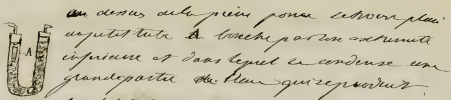 A
au dessus de la pierre ponce se trouve placé
un petit tube A bouché par son extremité
inferieure et dans lequel se condense une
grande partie de l'eau qui se produit.